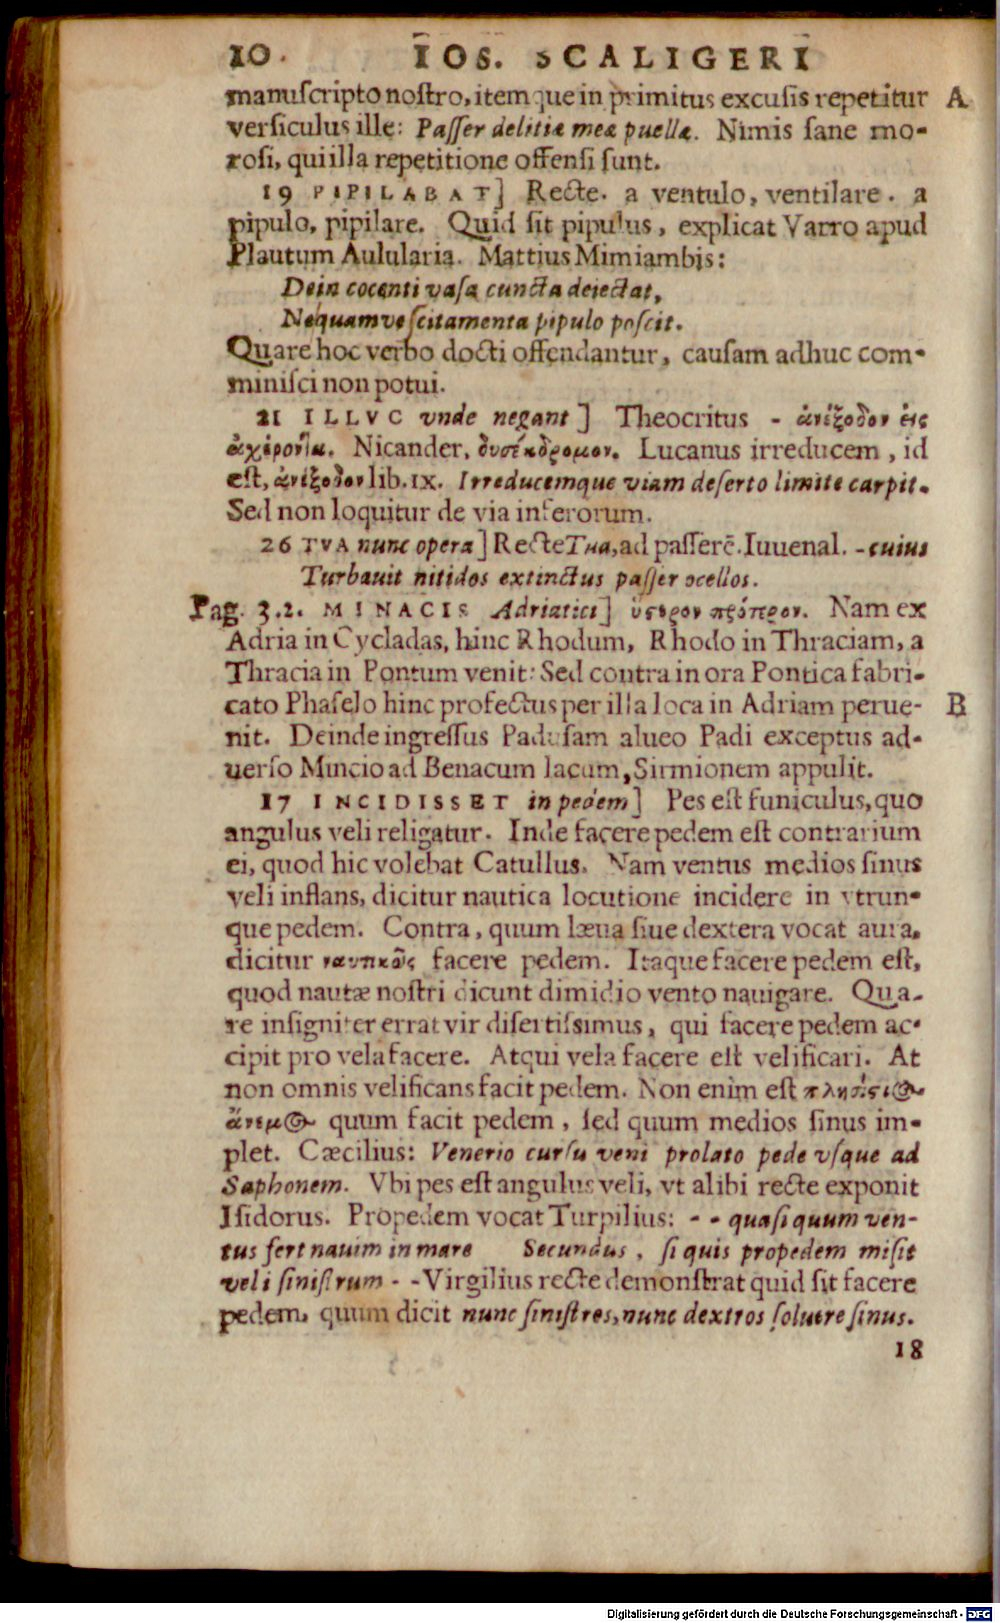 10. IOS. SCALIGERI
manuſcripto noſtro, itemque in primitus excuſis repetitur A
verſiculus ille: Paſſer delitiæ meæ puellæ. Nimis ſane mo-
roſi, qui illa repetitione offenſi ſunt.
19 PIPILABAT] Recte. a ventulo, ventilare. a
pipulo, pipilare. Quid ſit pipulus, explicat Varro apud
Plautum Aulularia. Mattius Mimiambis:
Dein cocenti vaſa cuncta deiectat,
Nequamve ſcitamenta pipulo poſcit.
Quare hoc verbo docti offendantur, cauſam adhuc com-
miniſci non potui.
21 ILLVC vnde negant] Theocritus - ἀνέξοδον εἰς
ἀχέροντα. Nicander, δυσέκδρομον. Lucanus irreducem, id
eſt, ἀνέξοδον lib. IX. Irreducemque viam deſerto limite carpit.
Sed non loquitur de via inferorum.
26 TVA nunc opera] Recte Tua, ad paſſerē. Iuuenal. - cuius
Turbauit nitidos extinctus paſſer ocellos.
Pag. 3.2. MINACIS Adriatici] ὕστερον πρότερον. Nam ex
Adria in Cycladas, hinc Rhodum, Rhodo in Thraciam, a
Thracia in Pontum venit: Sed contra in ora Pontica fabri-
cato Phaſelo hinc profectus per illa loca in Adriam perue- B
nit. Deinde ingreſſus Paduſam alueo Padi exceptus ad-
uerſo Mincio ad Benacum lacum, Sirmionem appulit.
17 INCIDISSET in pedem] Pes eſt funiculus, quo
angulus veli religatur. Inde facere pedem eſt contrarium
ei, quod hic volebat Catullus. Nam ventus medios ſinus
veli inflans, dicitur nautica locutione incidere in vtrun-
que pedem. Contra, quum læua ſiue dextera vocat aura,
dicitur ναυτικῶς facere pedem. Itaque facere pedem eſt,
quod nautæ noſtri dicunt dimidio vento nauigare. Qua-
re inſigniter errat vir diſertiſsimus, qui facere pedem ac-
cipit pro vela facere. Atqui vela facere eſt velificari. At
non omnis velificans facit pedem. Non enim eſt πλησίστιος
ἄνεμος quum facit pedem, ſed quum medios ſinus im-
plet. Cæcilius: Venerio curſu veni prolato pede vſque ad
Saphonem. Vbi pes eſt angulus veli, vt alibi recte exponit
Iſidorus. Propedem vocat Turpilius: - - quaſi quum ven-
tus fert nauim in mare Secundus, ſi quis propedem miſit
veli ſiniſtrum - - Virgilius recte demonſtrat quid ſit facere
pedem, quum dicit nunc ſiniſtros, nunc dextros ſoluere ſinus.
18
Digitalisierung gefördert durch die Deutsche Forschungsgemeinschaft - DFG